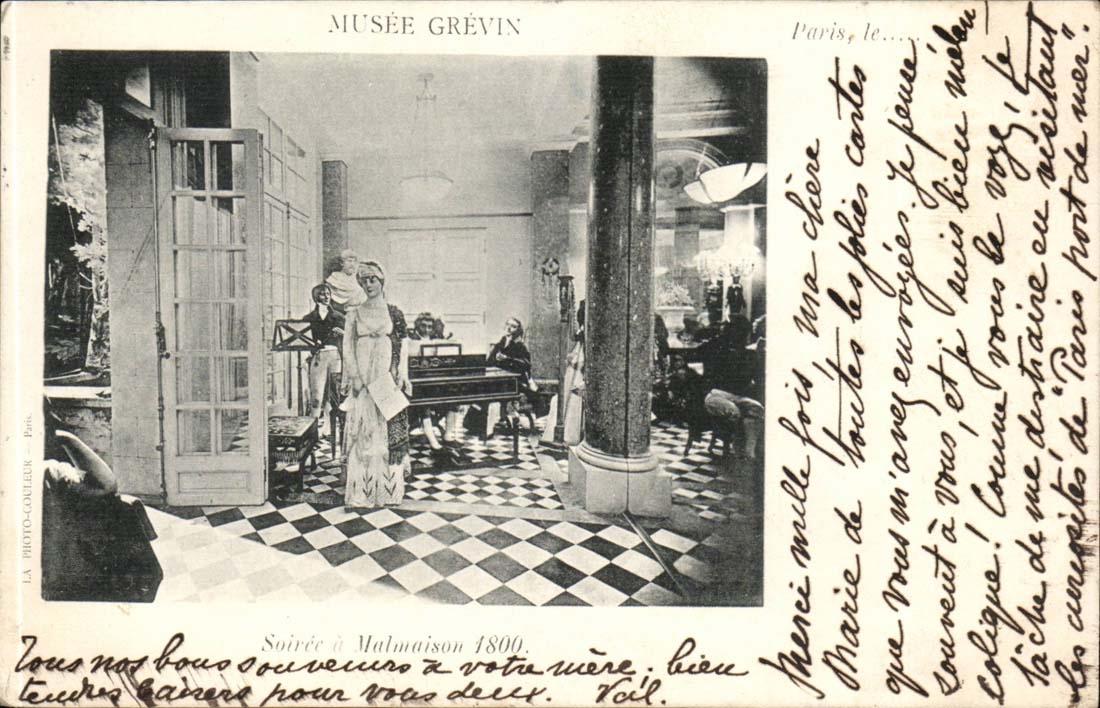 MUSÉE GRÉVIN
Paris, le.....
LA PHOTO-COULEUR - Paris.
Soirée à Malmaison 1800.
Merci mille fois ma chère
Marie de toutes les jolies cartes
que vous m'avez envoyées. Je pense
souvent à vous, et je suis bien mélan
colique! Comme vous le voyez, je
tâche de me distraire en visitant
les curiosités de "Paris port de mer".
Tous nos bons souvenirs à votre mère; bien
tendres baisers pour vous deux.